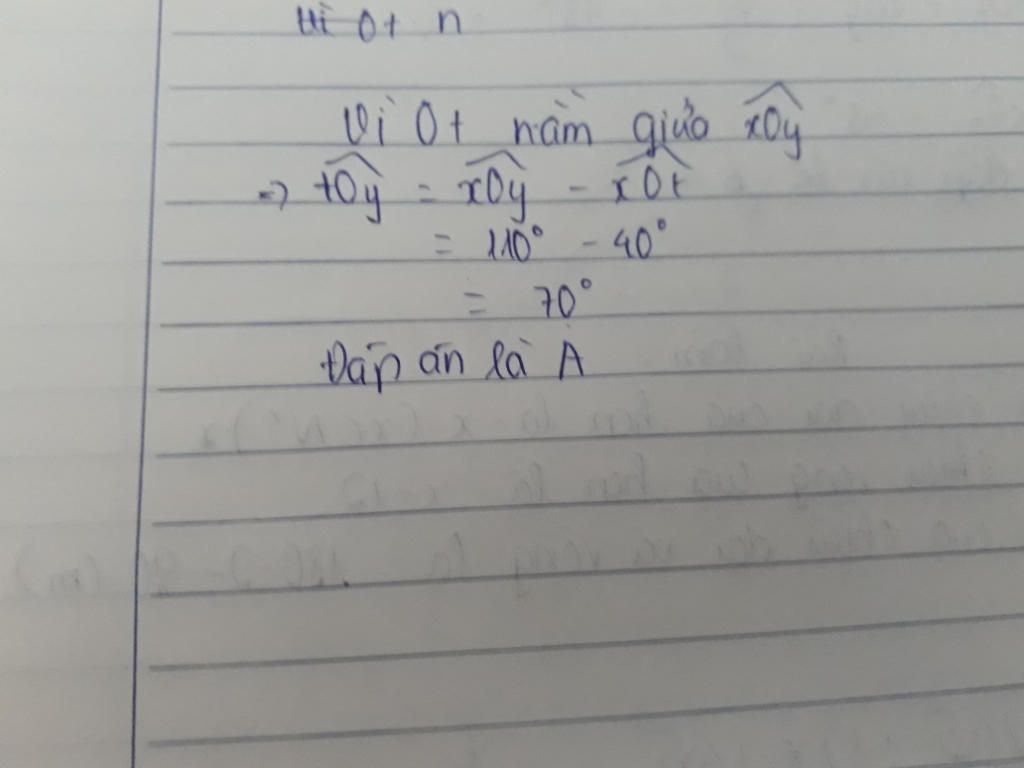 Vì Ot n
Vì Ot nằm giữa xOy
=> tOy = xOy - xOt
= 110° - 40°
= 70°
Đáp án là A